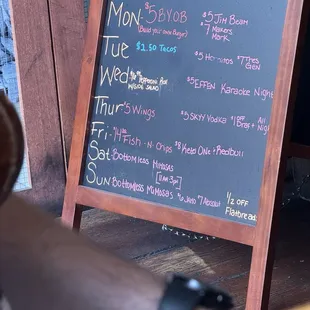 Mon $5 BYOB $5 Jim Beam
(Build your own Burger) $7 Makers Mark
Tue $2.50 Tacos $5 Hornitos $7 Tres Gen
Wed w/ side salad $5 EFFEN Karaoke Night
Thur $5 Wings $5 SKYY Vodka $1 off All Draft Night
Fri $14 Fish-n-Chips $8 Ketel One & Redbull
Sat Bottomless Mimosas
[11am-3pm]
Sun Bottomless Mimosas $7 Absolut 1/2 OFF Flatbreads